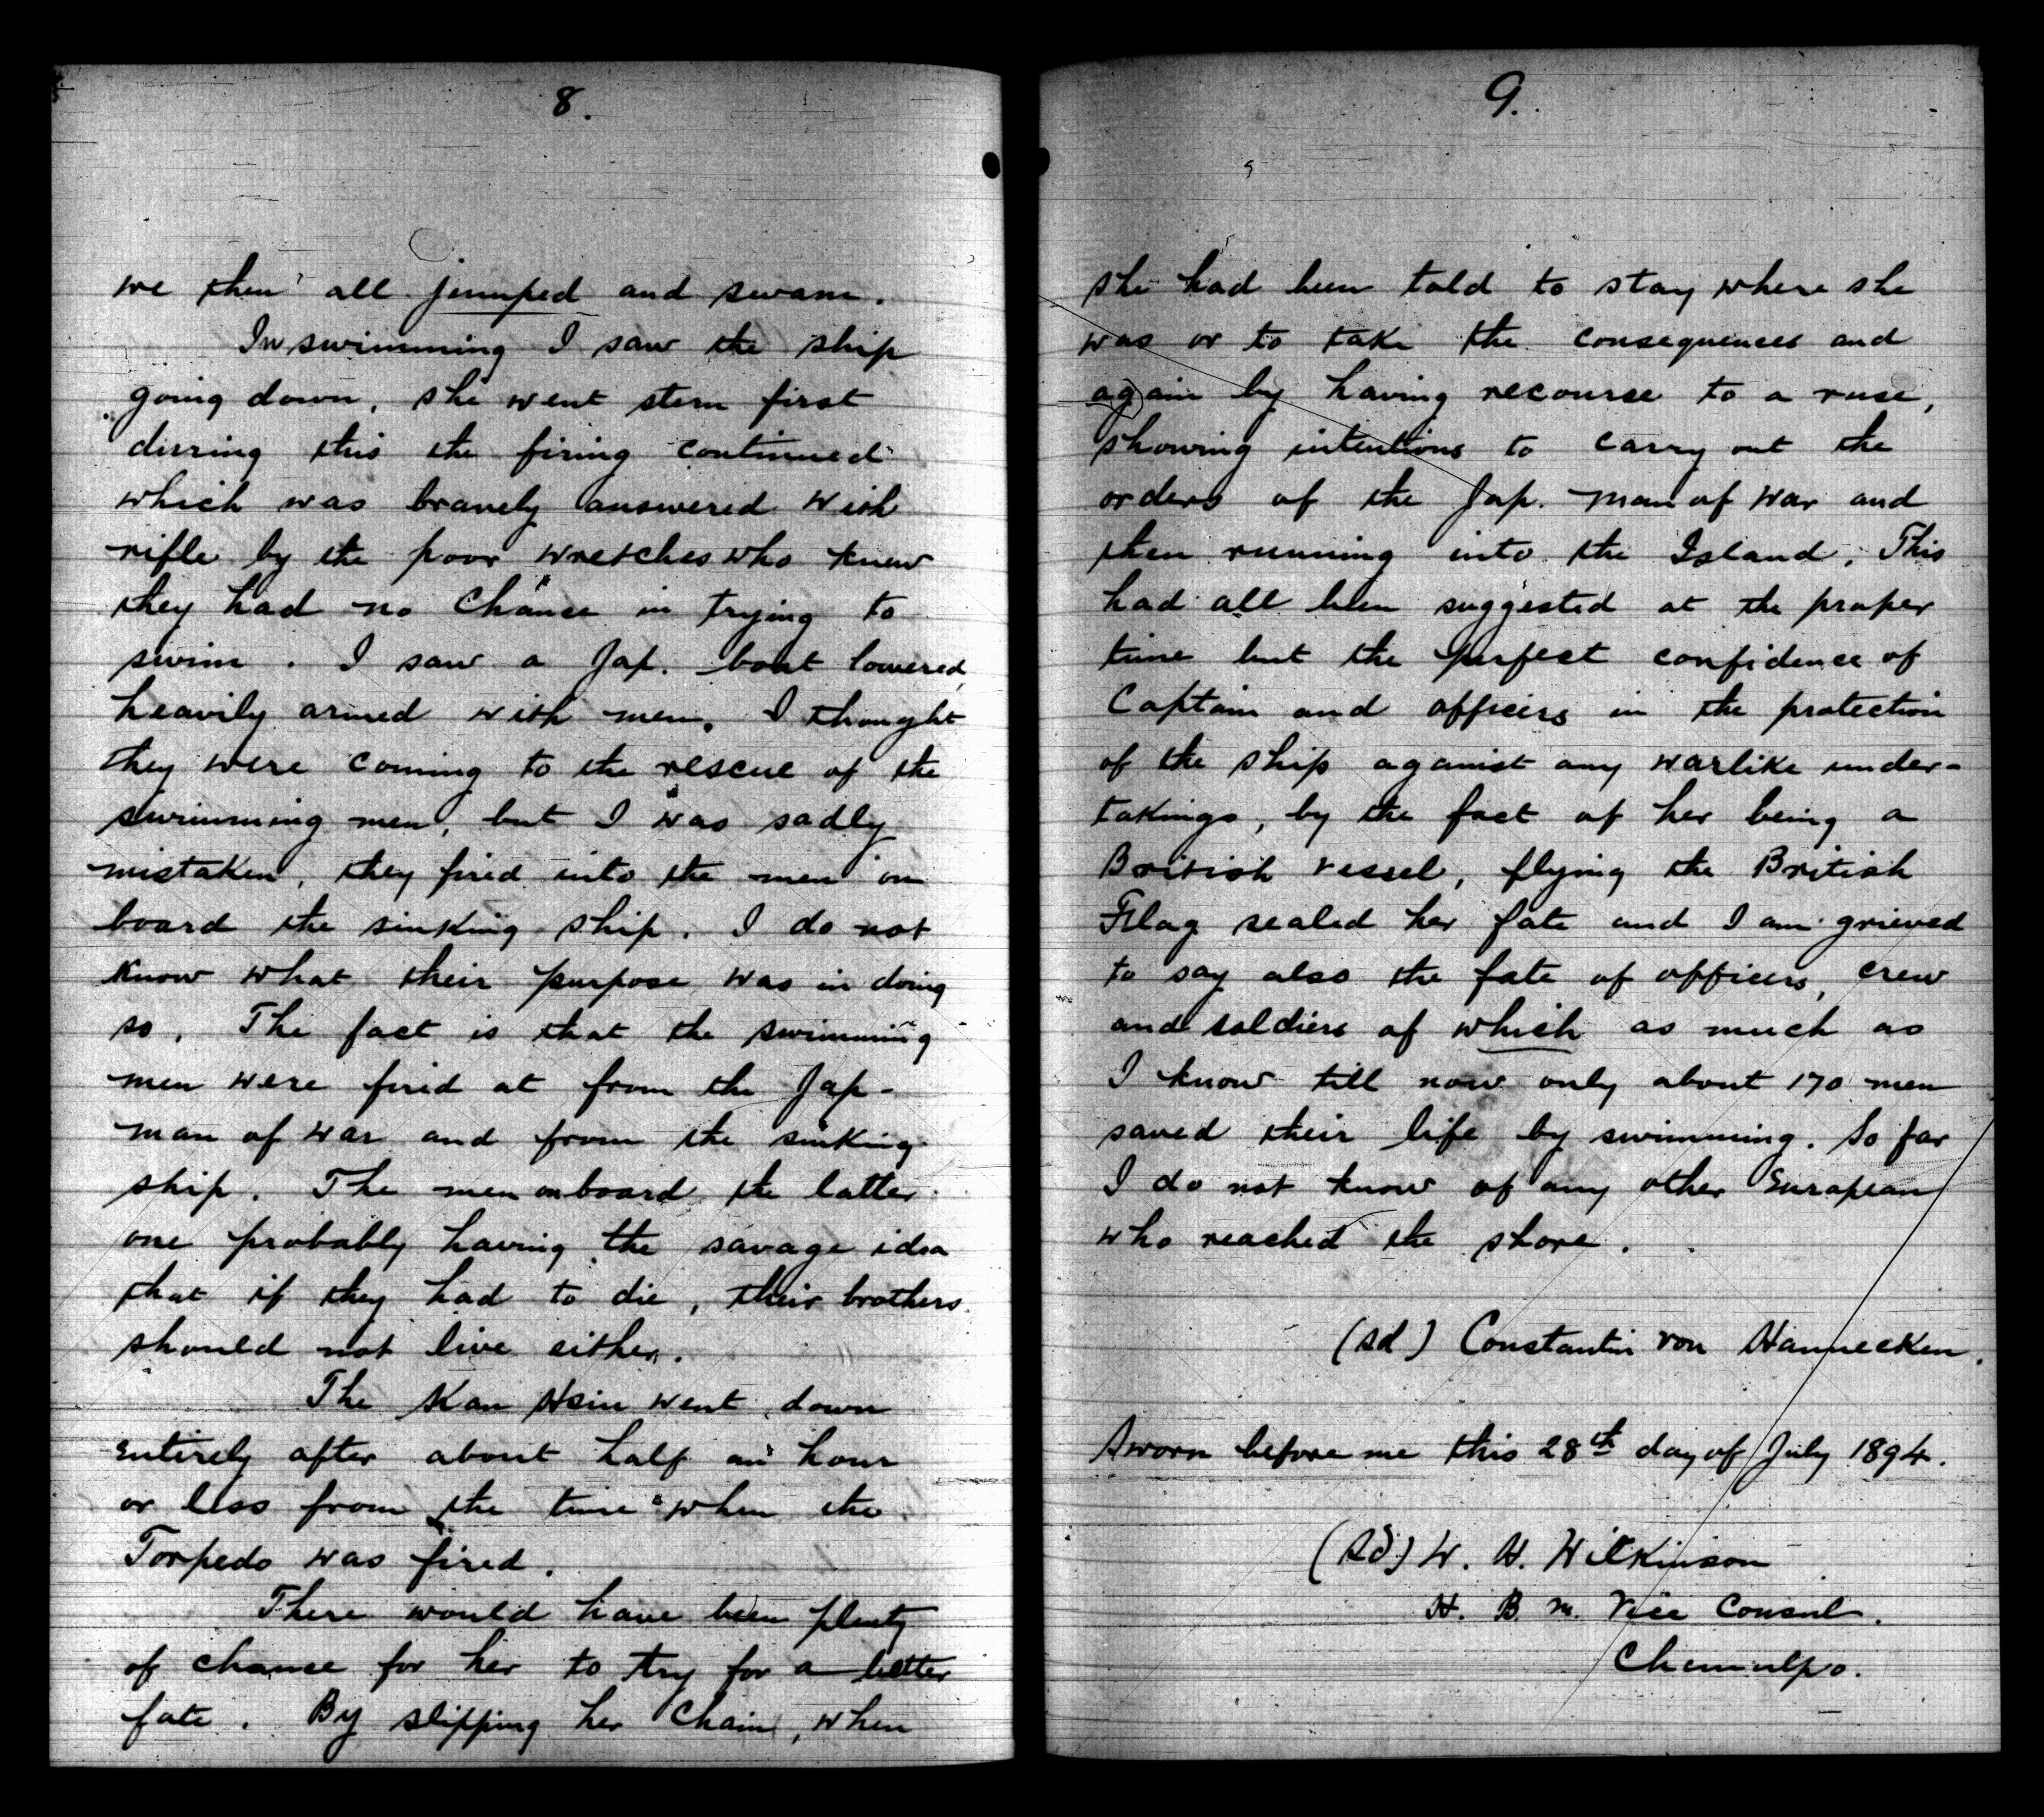 8.
we then all jumped and swam.
In swimming I saw the ship
going down, she went stern first
during this the firing continued
which was bravely answered with
rifle by the poor wretches who knew
they had no chance in trying to
swim. I saw a Jap. boat lowered,
heavily armed with men. I thought
they were coming to the rescue of the
swimming men, but I was sadly
mistaken, they fired into the men on
board the sinking ship. I do not
know what their purpose was in doing
so. The fact is that the swimming
men were fired at from the Jap-
man of war and from the sinking
ship. The men on board the latter
one probably having the savage idea
that if they had to die, their brothers
should not live either.
The Kan Hsin went down
entirely after about half an hour
or less from the time when the
Torpedo was fired.
There would have been plenty
of chance for her to try for a better
fate. By slipping her chain, when
9.
she had been told to stay where she
was or to take the consequences and
again by having recourse to a ruse,
showing intentions to carry out the
orders of the Jap. man of war and
then running into the Island. This
had all been suggested at the proper
time but the perfect confidence of
Captain and officers in the protection
of the ship against any warlike under-
takings, by the fact of her being a
British vessel, flying the British
Flag sealed her fate and I am grieved
to say also the fate of officers, crew
and soldiers of which as much as
I know till now only about 170 men
saved their life by swimming. So far
I do not know of any other European
who reached the shore.
(sd) Constantin von Hannecken.
Sworn before me this 28th day of July 1894.
(sd) W. H. Wilkinson
H. B. M. Vice Consul.
Chemulpo.